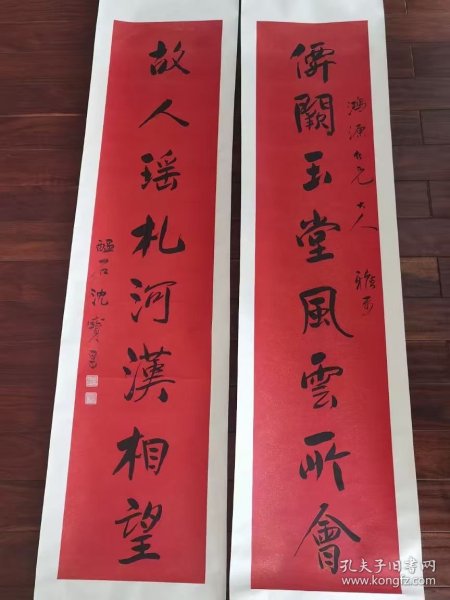 僊闕玉堂風雲所會
鴻源仁兄大人 雅正
故人瑶札河漢相望
沈寶昌
孔夫子旧书网
www.kongfz.com